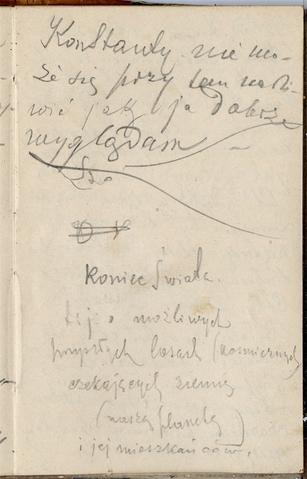 Konstanty nie mo-
że się przy tem nadzi-
wić jak ja dobrze
wyglądam
Koniec świata.
t. j. o możliwych
przyszłych losach (kosmicznych)
czekających ziemię
(naszą planetę)
i jej mieszkańców.